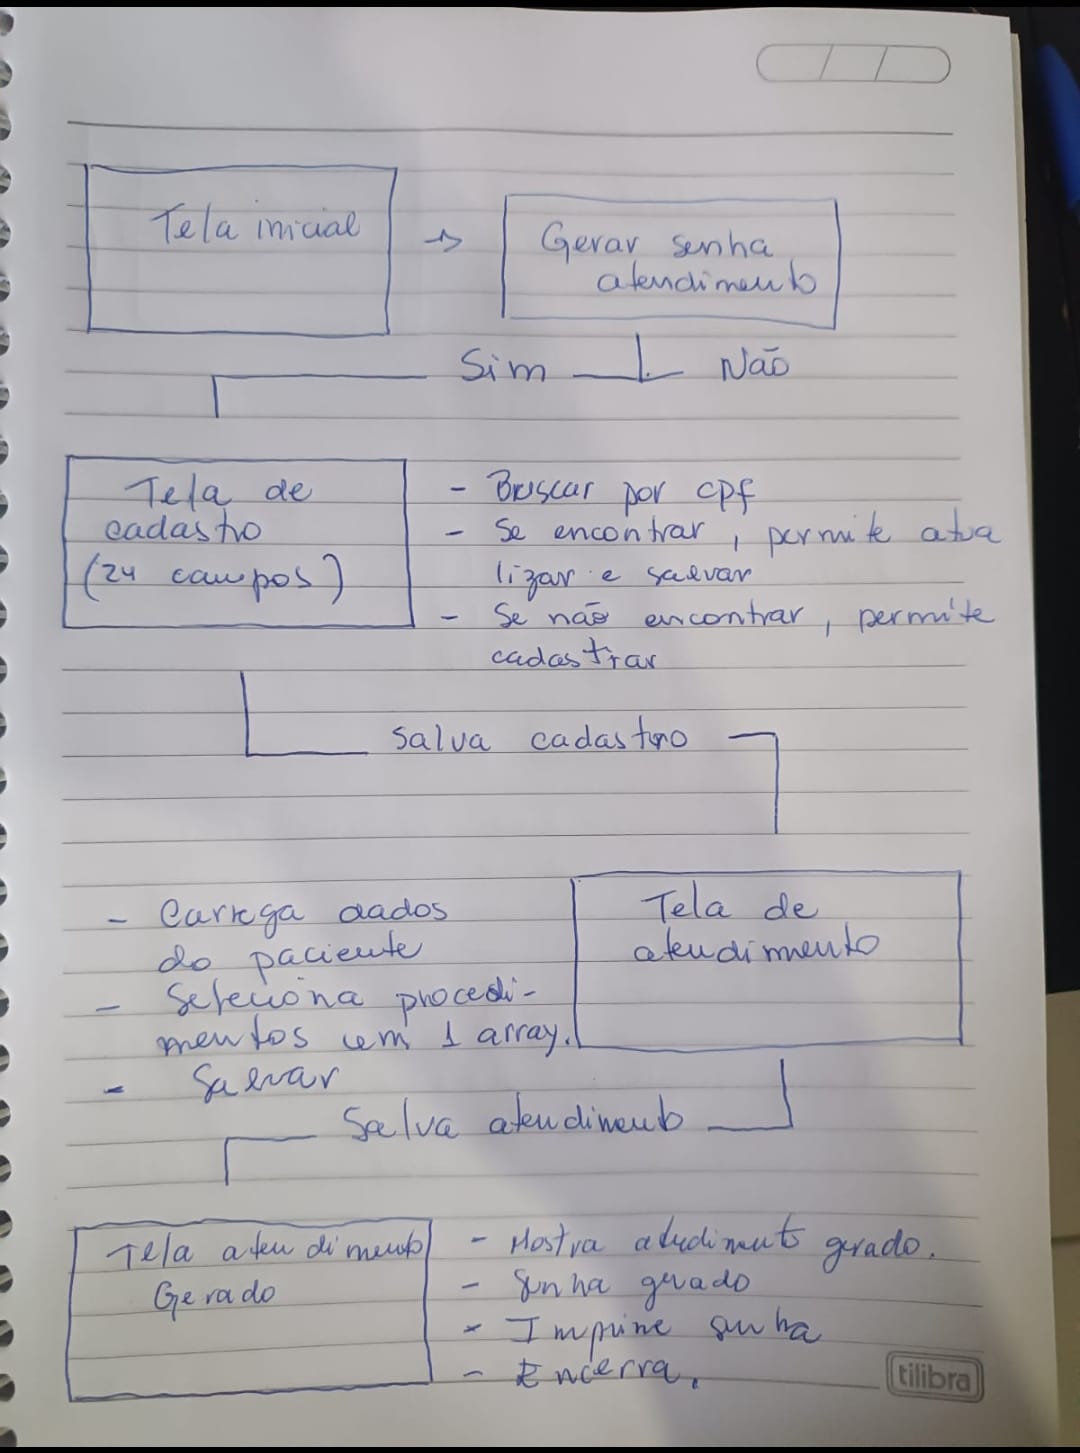 Tela inicial
Gerar senha
atendimento
Sim
Não
Tela de
cadastro
(24 campos)
- Buscar por cpf
- Se encontrar, permite atua
lizar e salvar
- Se não encontrar, permite
cadastrar
Salva cadastro
- Carrega dados
do paciente
- Seleciona procedi-
mentos em 1 array.
- Salvar
Tela de
atendimento
Salva atendimento
Tela atendimento
Gerado
- Mostra atendimento gerado.
- Senha gerado
- Imprime senha
- Encerra.
tilibra